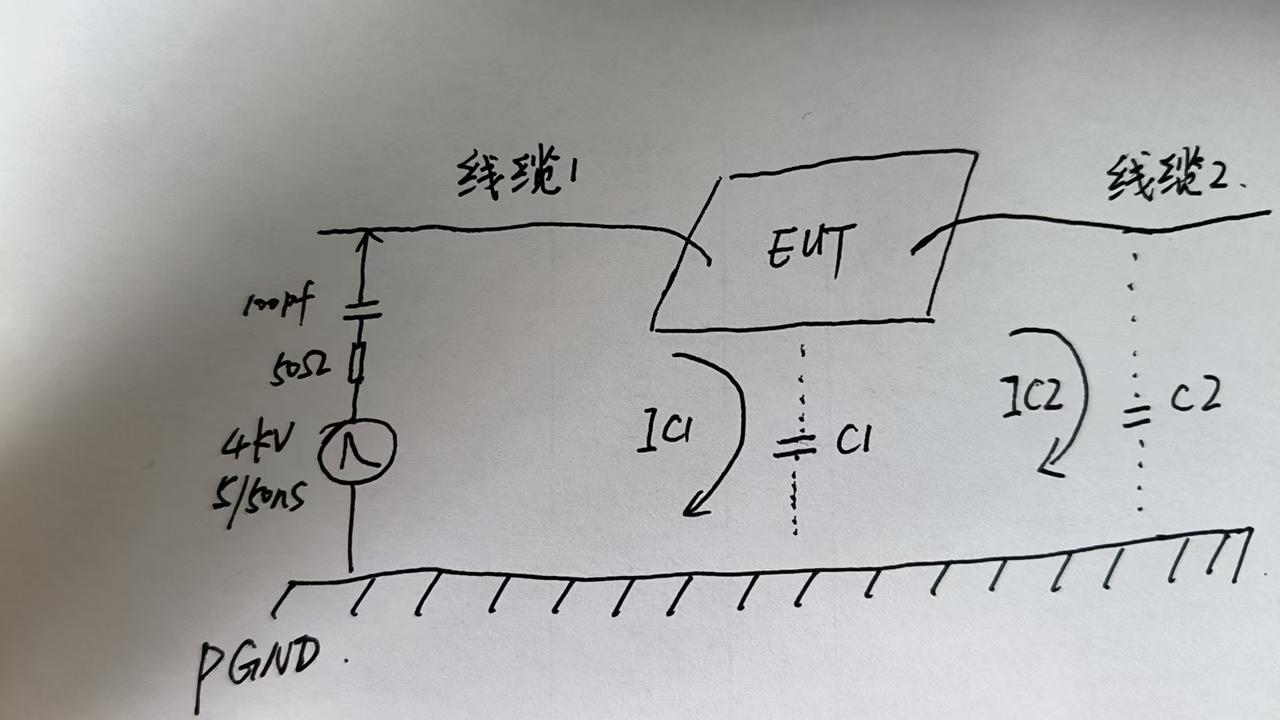 线缆1
线缆2.
EUT
100pf
50Ω
4kV
5/50ns
IC1
C1
IC2
C2
PGND.